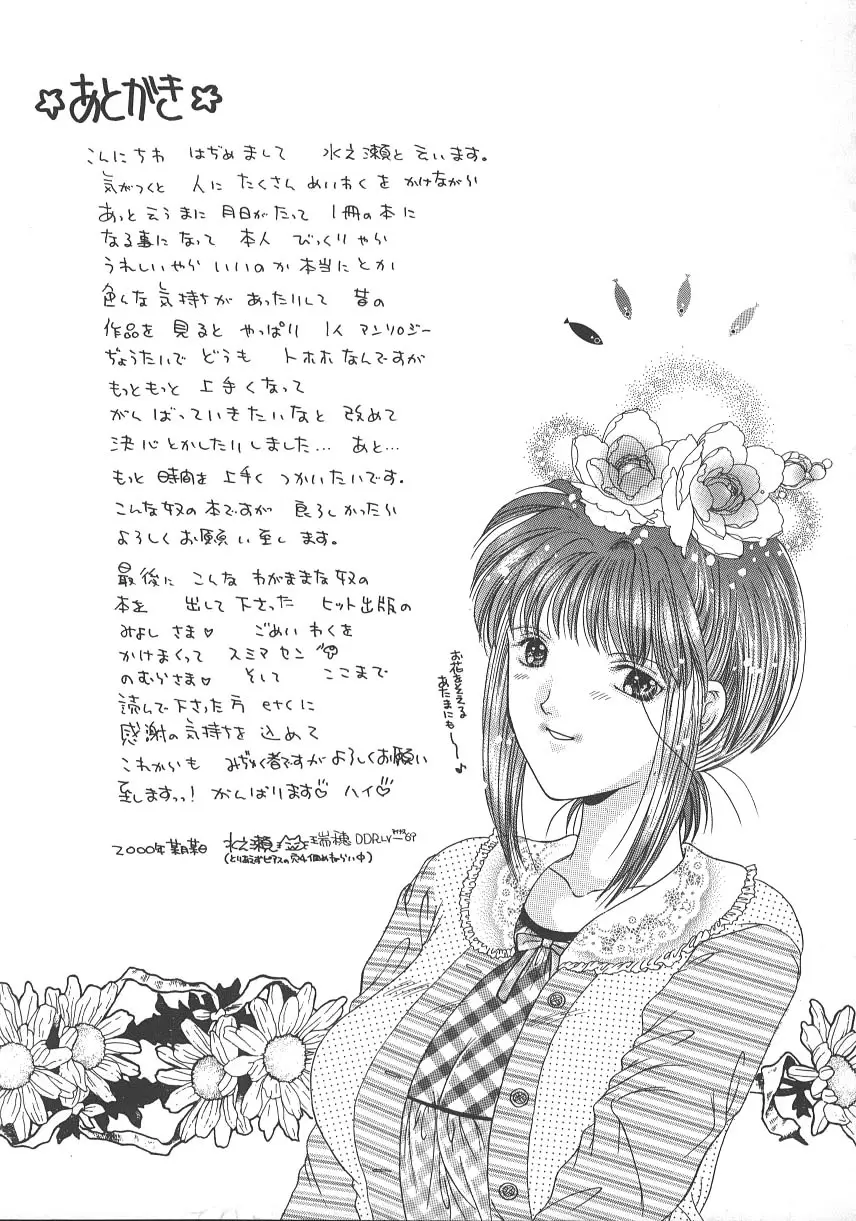 ☆あとがき☆
こんにちわ はぢめまして 水之瀬と云います。
気がつくと 人に たくさん めいわくを かけながら
あっと云うまに 月日がたって 1冊の本に
なる事になって 本人 びっくりやら
うれしいやら いいのか本当にとか
色々な気持ちが あったりして 昔の
作品を 見ると やっぱり 1人 アンソロジー
ぢょうたいで どうも トホホなんですが
もっともっと 上手くなって
がんばっていきたいなと 改めて
決心とかしたりしました… あと…
もっと 時間を 上手く つかいたいです。
こんな奴の本ですが 良ろしかったら
よろしくお願い至します。
最後に こんな わがままな奴の
本を 出して下さった ヒット出版の
みよしさま♡ ごめいわくを
かけまくって スミマセン
のむらさま♡ そして ここまで
読んで下さった方 etcに
感謝の気持ちを 込めて
これからも みぢゅく者ですがよろしくお願い
至しますっっ! がんばります♡ ハイ♡
2000年 水之瀬 瑞穂 DDR LV
(とりあえずピアスの穴4個めねらい中)
お花をそえる
あたまにも〜〜♪